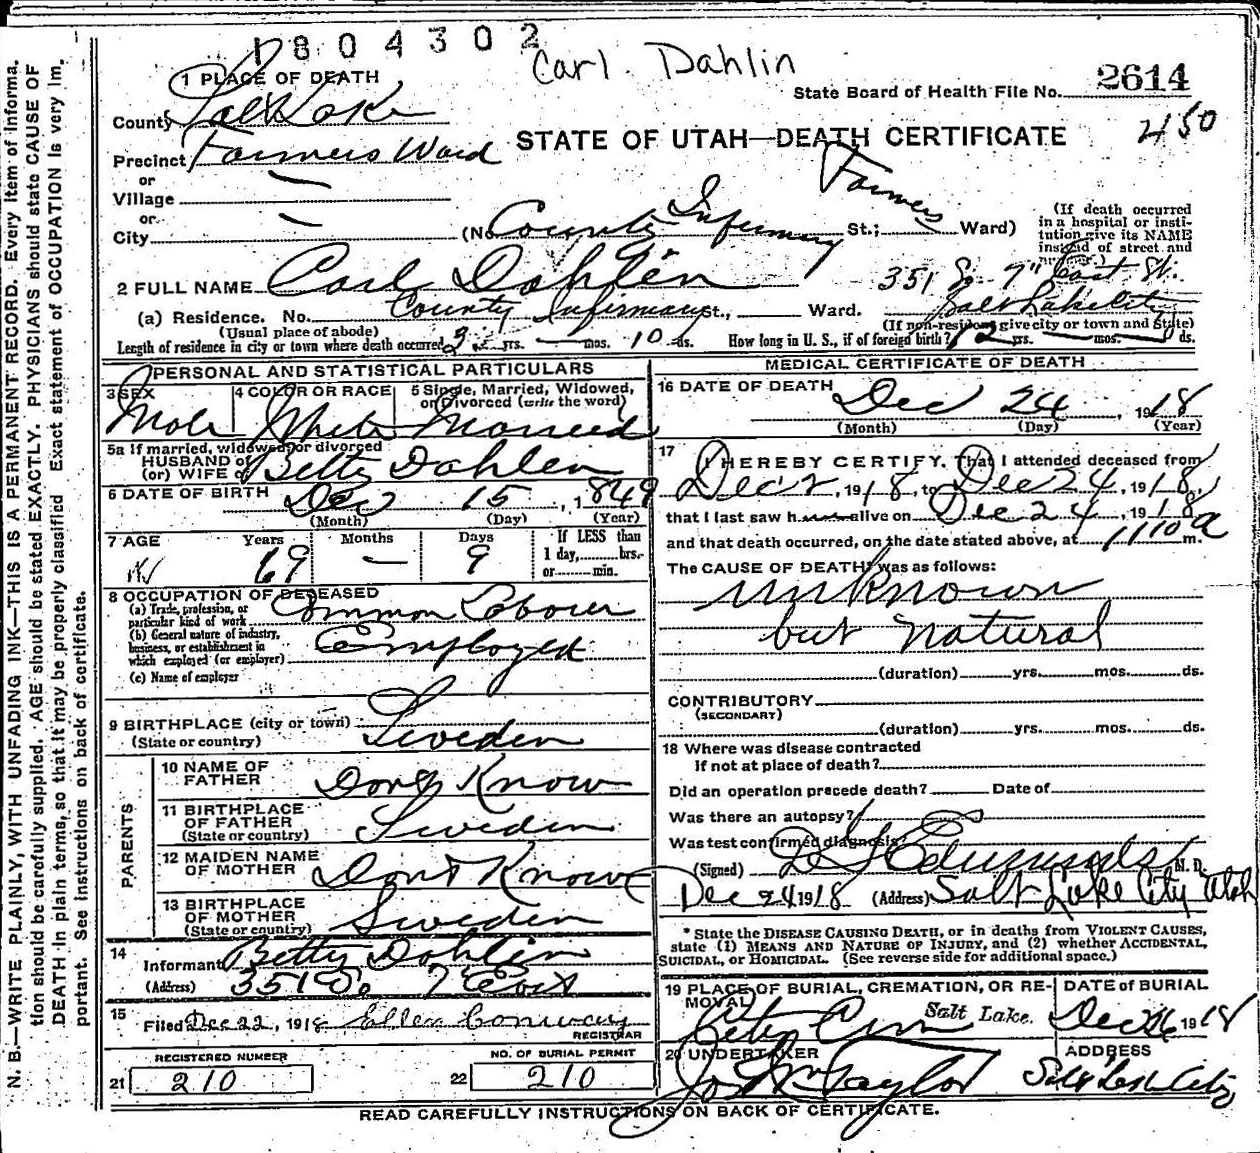 1804302
Carl Dahlin
1 PLACE OF DEATH
State Board of Health File No. 2614
County Salt Lake
STATE OF UTAH—DEATH CERTIFICATE 450
Precinct Farmers Ward
or
Village —
or
City — (No. County Infirmary St.; Farmers Ward)
(If death occurred in a hospital or institution give its NAME instead of street and number.)
2 FULL NAME Carl Dahlin 351 So 7" East St.
(a) Residence. No. County Infirmary St., Ward. Salt Lake City
(Usual place of abode) (If non-resident give city or town and State)
Length of residence in city or town where death occurred yrs. — mos. 10 ds. How long in U. S., if of foreign birth? yrs. mos. ds.
PERSONAL AND STATISTICAL PARTICULARS
3 SEX Male
4 COLOR OR RACE White
5 Single, Married, Widowed, or Divorced (write the word) Married
5a If married, widowed, or divorced
HUSBAND of
(or) WIFE of Betty Dahlen
6 DATE OF BIRTH Dec 15, 1849
(Month) (Day) (Year)
7 AGE Years 69 Months — Days 9
If LESS than 1 day, hrs. or min.
8 OCCUPATION OF DECEASED
(a) Trade, profession, or particular kind of work Common Laborer
(b) General nature of industry, business, or establishment in which employed (or employer) Employed
(c) Name of employer
9 BIRTHPLACE (city or town)
(State or country) Sweden
PARENTS
10 NAME OF FATHER Dont Know
11 BIRTHPLACE OF FATHER (State or country) Sweden
12 MAIDEN NAME OF MOTHER Dont Know
13 BIRTHPLACE OF MOTHER (State or country) Sweden
14 Informant Betty Dahlin
(Address) 351 So 7 East
15 Filed Dec 22, 1918 Ellen Conway
REGISTRAR
REGISTERED NUMBER
21 210
NO. OF BURIAL PERMIT
22 210
MEDICAL CERTIFICATE OF DEATH
16 DATE OF DEATH Dec 24, 1918
(Month) (Day) (Year)
17 I HEREBY CERTIFY, That I attended deceased from
Dec 2, 1918, to Dec 24, 1918,
that I last saw h alive on Dec 24, 1918
and that death occurred, on the date stated above, at 1110 a m.
The CAUSE OF DEATH* was as follows:
unknown
but natural
(duration) yrs. mos. ds.
CONTRIBUTORY
(SECONDARY)
(duration) yrs. mos. ds.
18 Where was disease contracted
If not at place of death?
Did an operation precede death? Date of
Was there an autopsy?
Was test confirmed diagnosis
(Signed) Edmunds M. D.
Dec 24 1918 (Address) Salt Lake City Utah
* State the DISEASE CAUSING DEATH, or in deaths from VIOLENT CAUSES,
state (1) MEANS AND NATURE OF INJURY, and (2) whether ACCIDENTAL,
SUICIDAL, or HOMICIDAL. (See reverse side for additional space.)
19 PLACE OF BURIAL, CREMATION, OR REMOVAL City Cem Salt Lake.
DATE OF BURIAL Dec 26 1918
20 UNDERTAKER Jos Wm Taylor
ADDRESS Salt Lake City
READ CAREFULLY INSTRUCTIONS ON BACK OF CERTIFICATE.
N. B.—WRITE PLAINLY, WITH UNFADING INK—THIS IS A PERMANENT RECORD. Every item of informa-
tion should be carefully supplied. AGE should be stated EXACTLY. PHYSICIANS should state CAUSE OF
DEATH in plain terms, so that it may be properly classified. Exact statement of OCCUPATION is very im-
portant. See instructions on back of certificate.